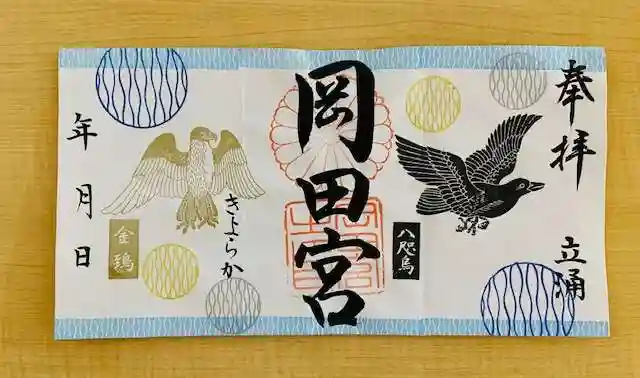 奉拝
立涌
八咫烏
岡田宮
きよらか
金鵄
年
月
日